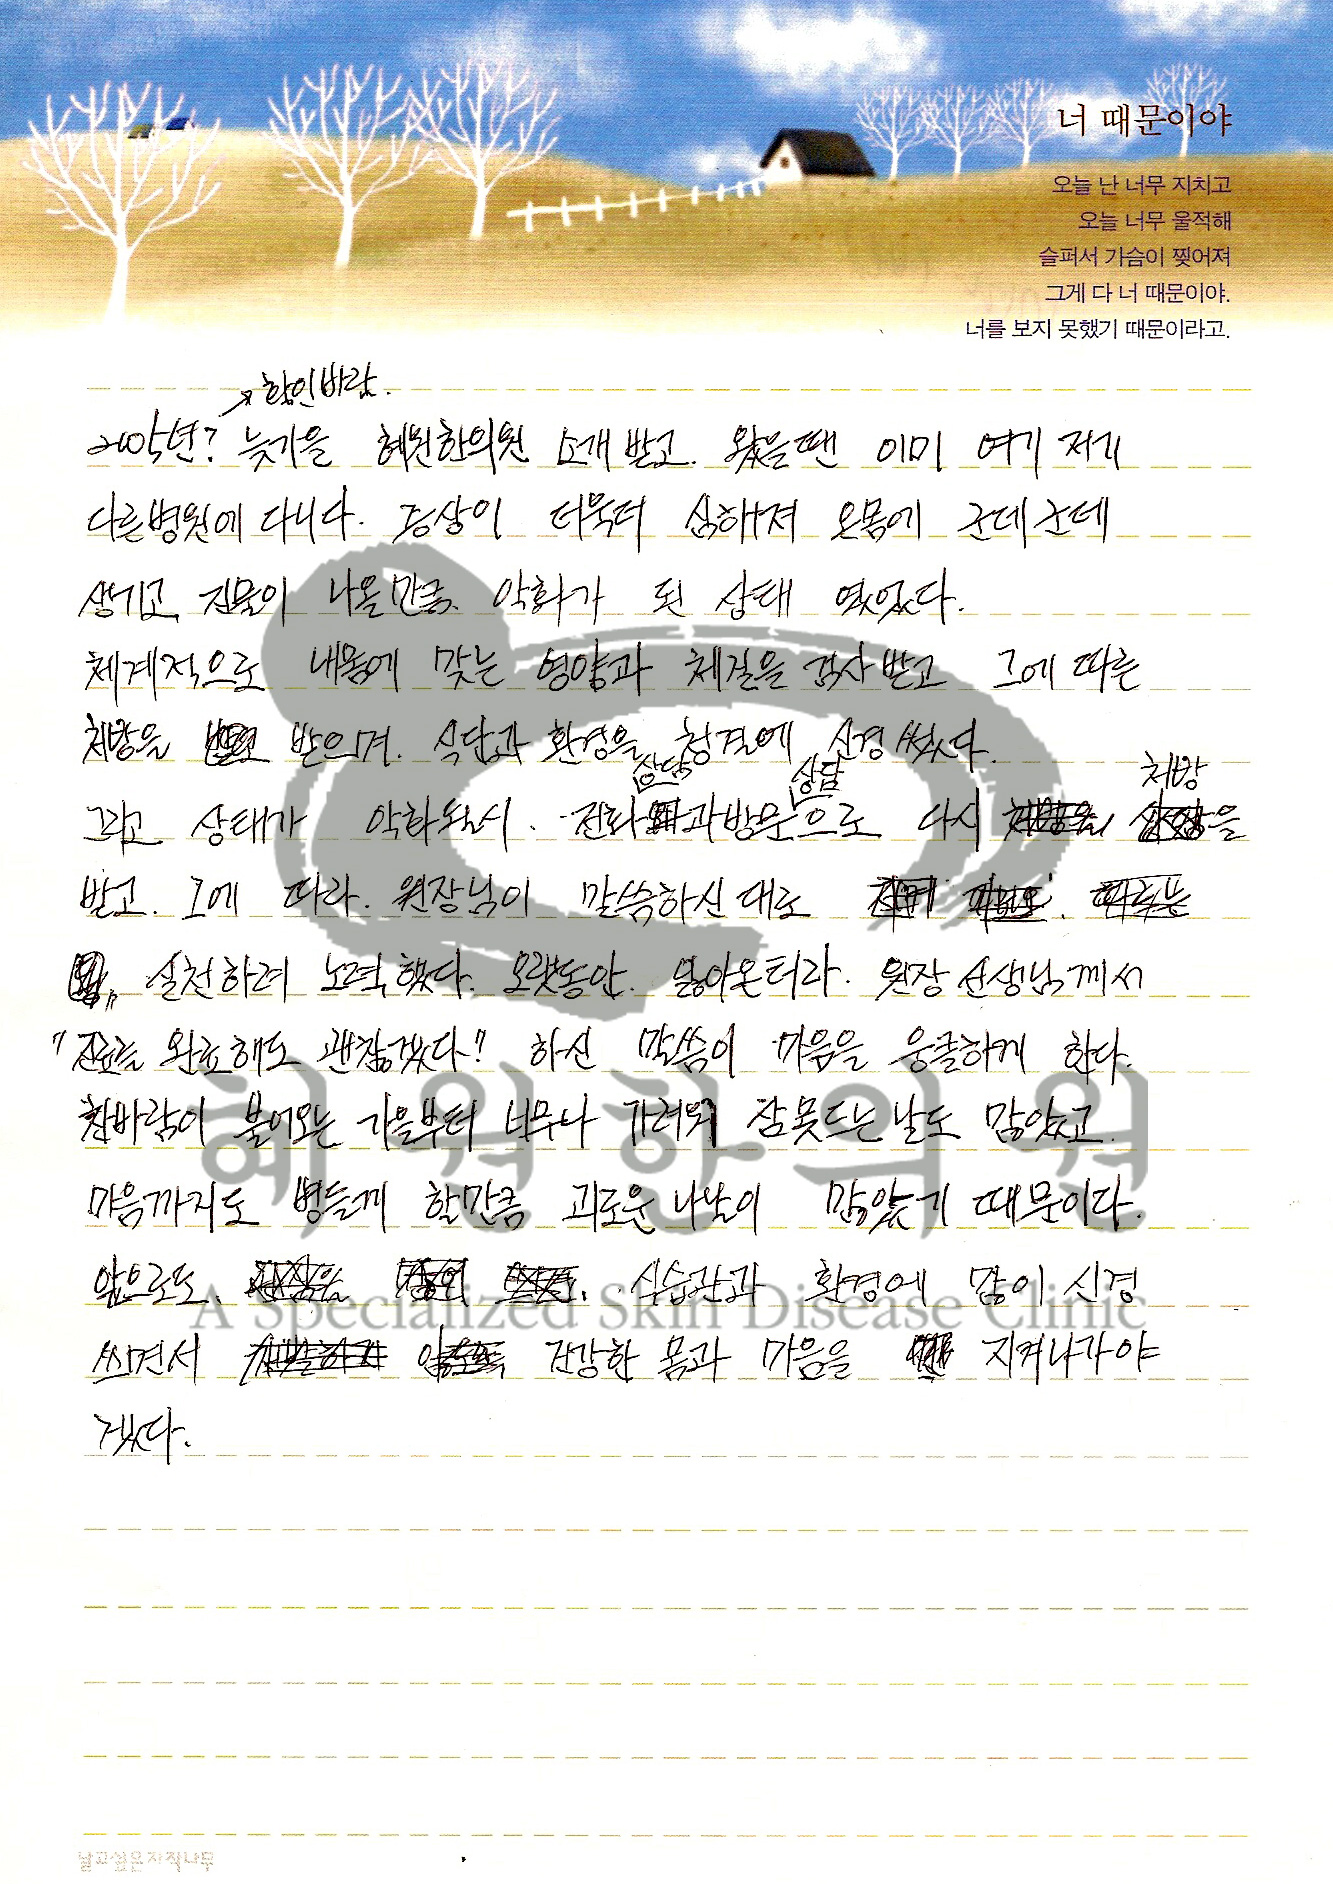 너 때문이야
오늘 난 너무 지치고
오늘 너무 울적해
슬퍼서 가슴이 찢어져
그게 다 너 때문이야.
너를 보지 못했기 때문이라고.
확인바람.
늦가을 혜원한의원 소개 받고. 왔을땐 이미 여기 저기
다른병원에 다니다. 증상이 더욱더 심해져 온몸에 군데군데
생기고, 진물이 나올만큼. 악화가 된 상태 였었다.
체계적으로 내몸에 맞는 영양과 체질을 검사받고 그에 따른
처방을 받으며. 식단과 환경을 청결에 신경 썼다.
상담 상담 처방
그리고 상태가 악화될시. 전화 과방문 으로 다시 을
받고. 그에 따라. 원장님이 말씀하신대로
실천하려 노력했다. 오랫동안. 앓아온터라. 원장선생님께서
"진료를 완료해도 괜찮겠다!" 하신 말씀이 마음을 뭉클하게 한다.
찬바람이 불어오는 가을부터 너무나 가려워 잠못드는날도 많았고.
마음까지도 병들게 할만큼 괴로운나날이 많았기 때문이다.
앞으로도. 식습관과 환경에 많이 신경
쓰면서 건강한 몸과 마음을 지켜나가야
겠다.
혜원한의원
A Specialized Skin Disease Clinic
날고싶은자작나무